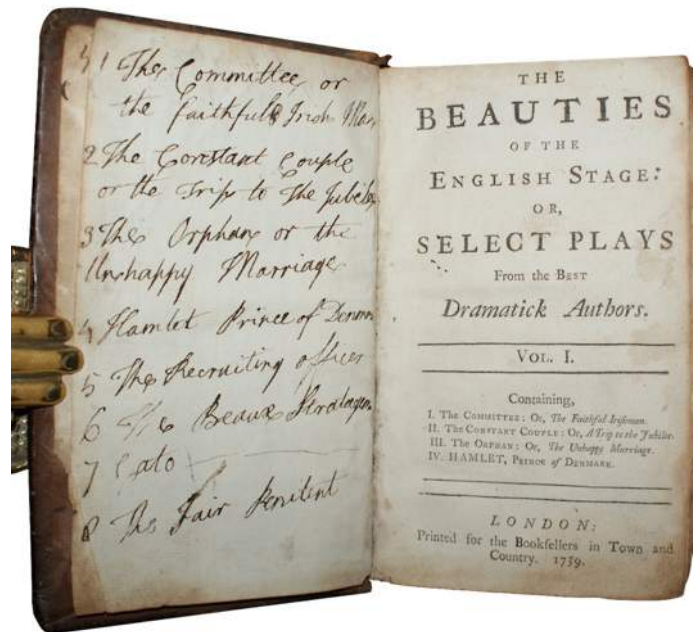 1 The Committee, or
the faithfull Irish Man
2 The Constant Couple
or the Trip to The Jubilee
3 The Orphan or the
Unhappy Marriage
4 Hamlet Prince of Denmark
5 The Recruiting officer
6 The Beaux Stratagem
7 Cato
8 The Fair Penitent
THE
BEAUTIES
OF THE
ENGLISH STAGE:
OR,
SELECT PLAYS
From the BEST
Dramatick Authors.
VOL. I.
Containing,
I. The COMMITTEE: Or, The Faithful Irishman.
II. The CONSTANT COUPLE: Or, A Trip to the Jubilee.
III. The ORPHAN: Or, The Unhappy Marriage.
IV. HAMLET, PRINCE of DENMARK.
LONDON:
Printed for the Bookſellers in Town and
Country. 1759.